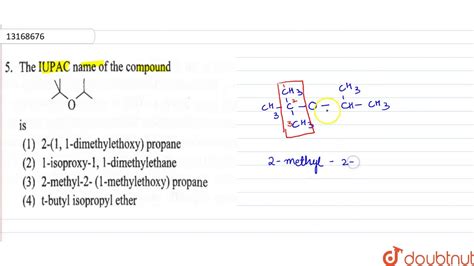 13168676
5. The IUPAC name of the compound
O
is
(1) 2-(1, 1-dimethylethoxy) propane
(2) 1-isoproxy-1, 1-dimethylethane
(3) 2-methyl-2- (1-methylethoxy) propane
(4) t-butyl isopropyl ether
1
CH3 CH3
CH3 - C 2 - O - CH - CH3
3 CH3
2-methyl - 2-
doubtnut